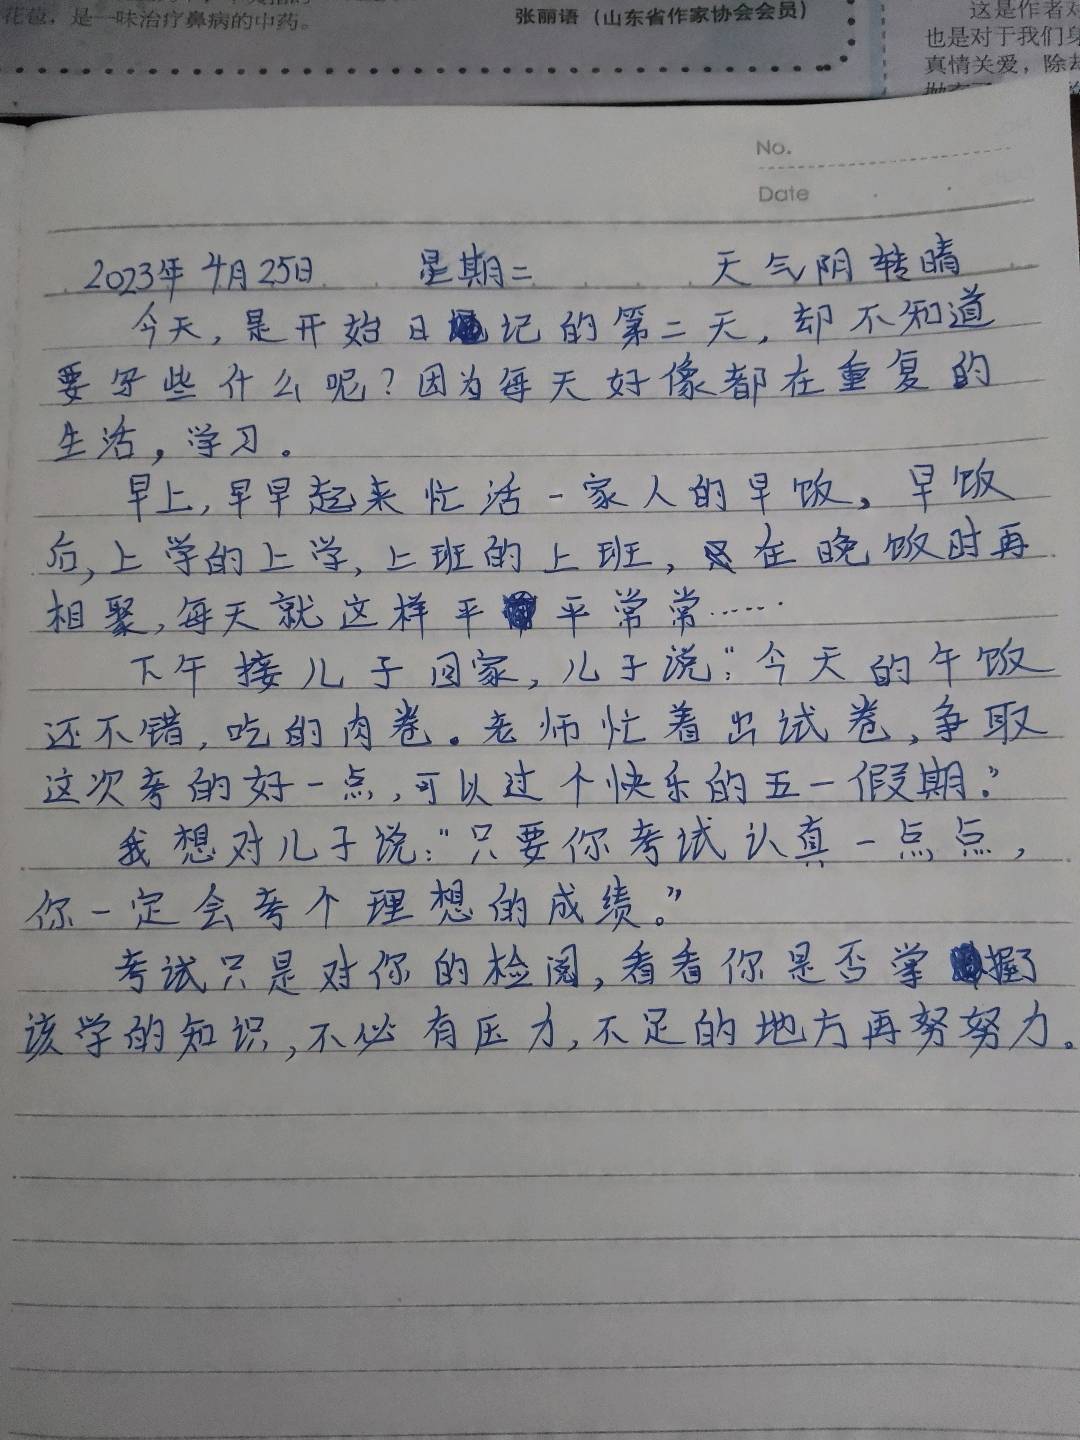 花苞，是一味治疗鼻病的中药。
张丽语（山东省作家协会会员）
这是作者对
也是对于我们身
真情关爱，除却
No.
Date
2023年4月25日 星期二 天气阴转晴
今天，是开始日记的第二天，却不知道
要写些什么呢？因为每天好像都在重复的
生活，学习。
早上，早早起来忙活一家人的早饭，早饭
后，上学的上学，上班的上班，在晚饭时再
相聚，每天就这样平平常常……
下午接儿子回家，儿子说：“今天的午饭
还不错，吃的肉卷。老师忙着出试卷，争取
这次考的好一点，可以过个快乐的五一假期。”
我想对儿子说：“只要你考试认真一点点，
你一定会考个理想的成绩。”
考试只是对你的检阅，看看你是否掌握了
该学的知识，不必有压力，不足的地方再努努力。